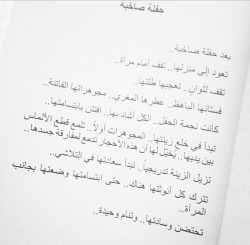 حفلة صاخبة
بعد حفلة صاخبة..
تعود إلى منزلها.. تقف أمام مرآة..
تقف لثوانٍ.. تعجبها طلتها..
فستانها الباهظ.. عطرها المغري.. مجوهراتها الفاتنة..
كانت نجمة الحفل.. الكل أشاد بها.. افتتن بابتسامتها..
تبدأ في خلع زينتها.. المجوهرات أولاً.. تلمع قطع الألماس
بين يديها.. يخيّل لها أن هذه الأحجار تدمع لمفارقة جسدها..
تزيل الزينة تدريجياً.. تبدأ سعادتها في التلاشي..
تترك كل أنوثتها هناك.. حتى ابتسامتها وضعتها بجانب
المرآة..
تحتضن وسادتها.. وتنام وحيدة..